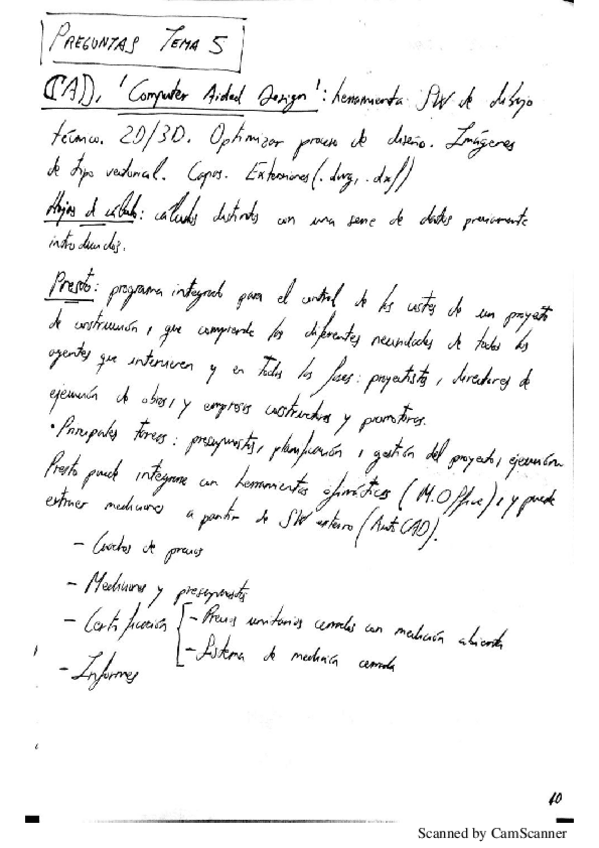 PREGUNTAS TEMA 5
CAD, 'Computer Aided Design': herramienta SW de dibujo
técnico. 2D/3D. Optimizar proceso de diseño. Imágenes
de tipo vectorial. Capas. Extensiones (.dwg, .dxf)
Hojas de cálculo: cálculos distintos con una serie de datos previamente
introducidos.
Presto: programa integrado para el control de los costes de un proyecto
de construcción, que comprende las diferentes necesidades de todos los
agentes que intervienen y en todas las fases: proyectistas, directores de
ejecución de obras, y empresas constructoras y promotoras.
• Principales tareas: presupuestos, planificación, gestión del proyecto, ejecución.
Presto puede integrarse con herramientas ofimáticas (M.Office), y puede
extraer mediciones a partir de SW externo (AutoCAD).
- Cuadros de precios
- Mediciones y presupuestos
- Certificación
- Precios unitarios cerrados con medición abierta
- Sistema de medición cerrada
- Informes
10
Scanned by CamScanner